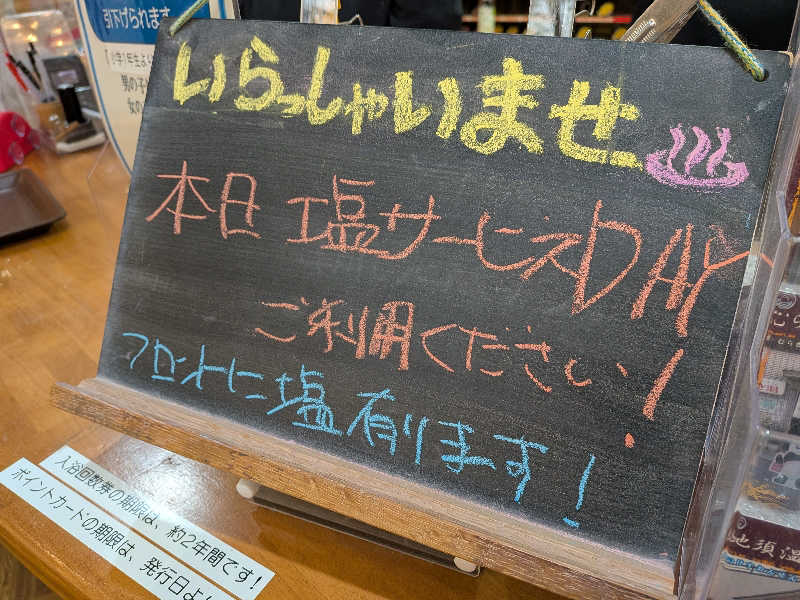 引下げられます
いらっしゃいませ
本日 塩サービスDAY
ご利用ください!
フロントに塩有ります!
入浴回数券の期限は、約2年間です!
ポイントカードの期限は、発行日よ